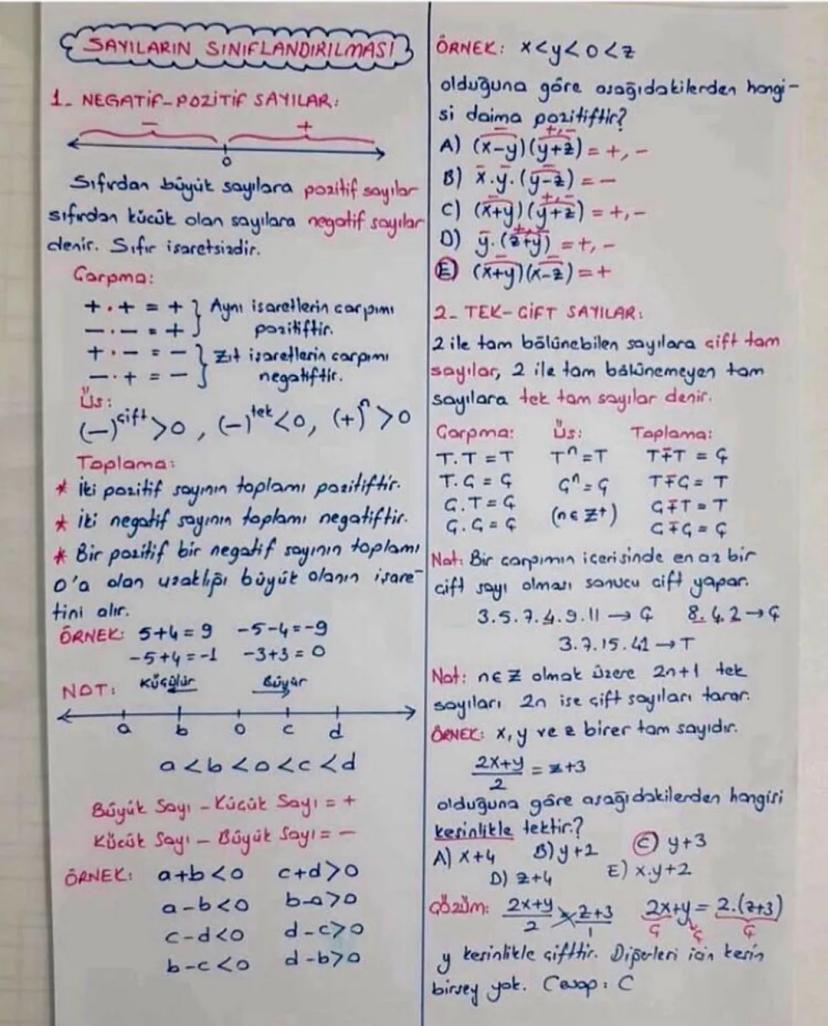 SAYILARIN SINIFLANDIRILMASI
1- NEGATİF-POZİTİF SAYILAR:
- +
0
Sıfırdan büyük sayılara pozitif sayılar
sıfırdan küçük olan sayılara negatif sayılar
denir. Sıfır işaretsizdir.
Çarpma:
+ . + = + } Aynı işaretlerin çarpımı
- . - = + } pozitiftir.
+ . - = - } Zıt işaretlerin çarpımı
- . + = - } negatiftir.
Üs:
(-)^çift > 0, (-)^tek < 0, (+)^n > 0
Toplama:
* İki pozitif sayının toplamı pozitiftir.
* İki negatif sayının toplamı negatiftir.
* Bir pozitif bir negatif sayının toplamı
0'a olan uzaklığı büyük olanın işare-
tini alır.
ÖRNEK: 5+4=9 -5-4=-9
-5+4=-1 -3+3=0
NOT: Küçülür Büyür
a b 0 c d
a<b<0<c<d
Büyük Sayı - Küçük Sayı = +
Küçük Sayı - Büyük Sayı = -
ÖRNEK: a+b<0 c+d>0
a-b<0 b-a>0
c-d<0 d-c>0
b-c<0 d-b>0
ÖRNEK: x<y<0<z
olduğuna göre aşağıdakilerden hangi-
si daima pozitiftir?
- +,-
A) (x-y)(y+z) = +,-
- - -
B) x.y.(y-z) = -
- +,-
C) (x+y)(y+z) = +,-
- +,-
D) y.(z+y) = +,-
- -
E) (x+y)(x-z) = +
2- TEK-ÇİFT SAYILAR:
2 ile tam bölünebilen sayılara çift tam
sayılar, 2 ile tam bölünemeyen tam
sayılara tek tam sayılar denir.
Çarpma: Üs: Toplama:
T.T=T T^n=T T∓T=Ç
T.Ç=Ç Ç^n=Ç T∓Ç=T
Ç.T=Ç (n∈Z⁺) Ç∓T=T
Ç.Ç=Ç Ç∓Ç=Ç
Not: Bir çarpımın içerisinde en az bir
çift sayı olması sonucu çift yapar.
3.5.7.4.9.11→Ç 8.4.2→Ç
3.7.15.41→T
Not: n∈Z olmak üzere 2n+1 tek
sayıları 2n ise çift sayıları tarar.
ÖRNEK: x,y ve z birer tam sayıdır.
(2x+y)/2 = z+3
olduğuna göre aşağıdakilerden hangisi
kesinlikle tektir?
A) x+4 B) y+2 C) y+3
D) z+4 E) x.y+2
Çözüm: (2x+y)/2 = (z+3)/1 2x+y = 2.(z+3)
Ç Ç Ç
y kesinlikle çifttir. Diğerleri için kesin
birşey yok. Cevap: C